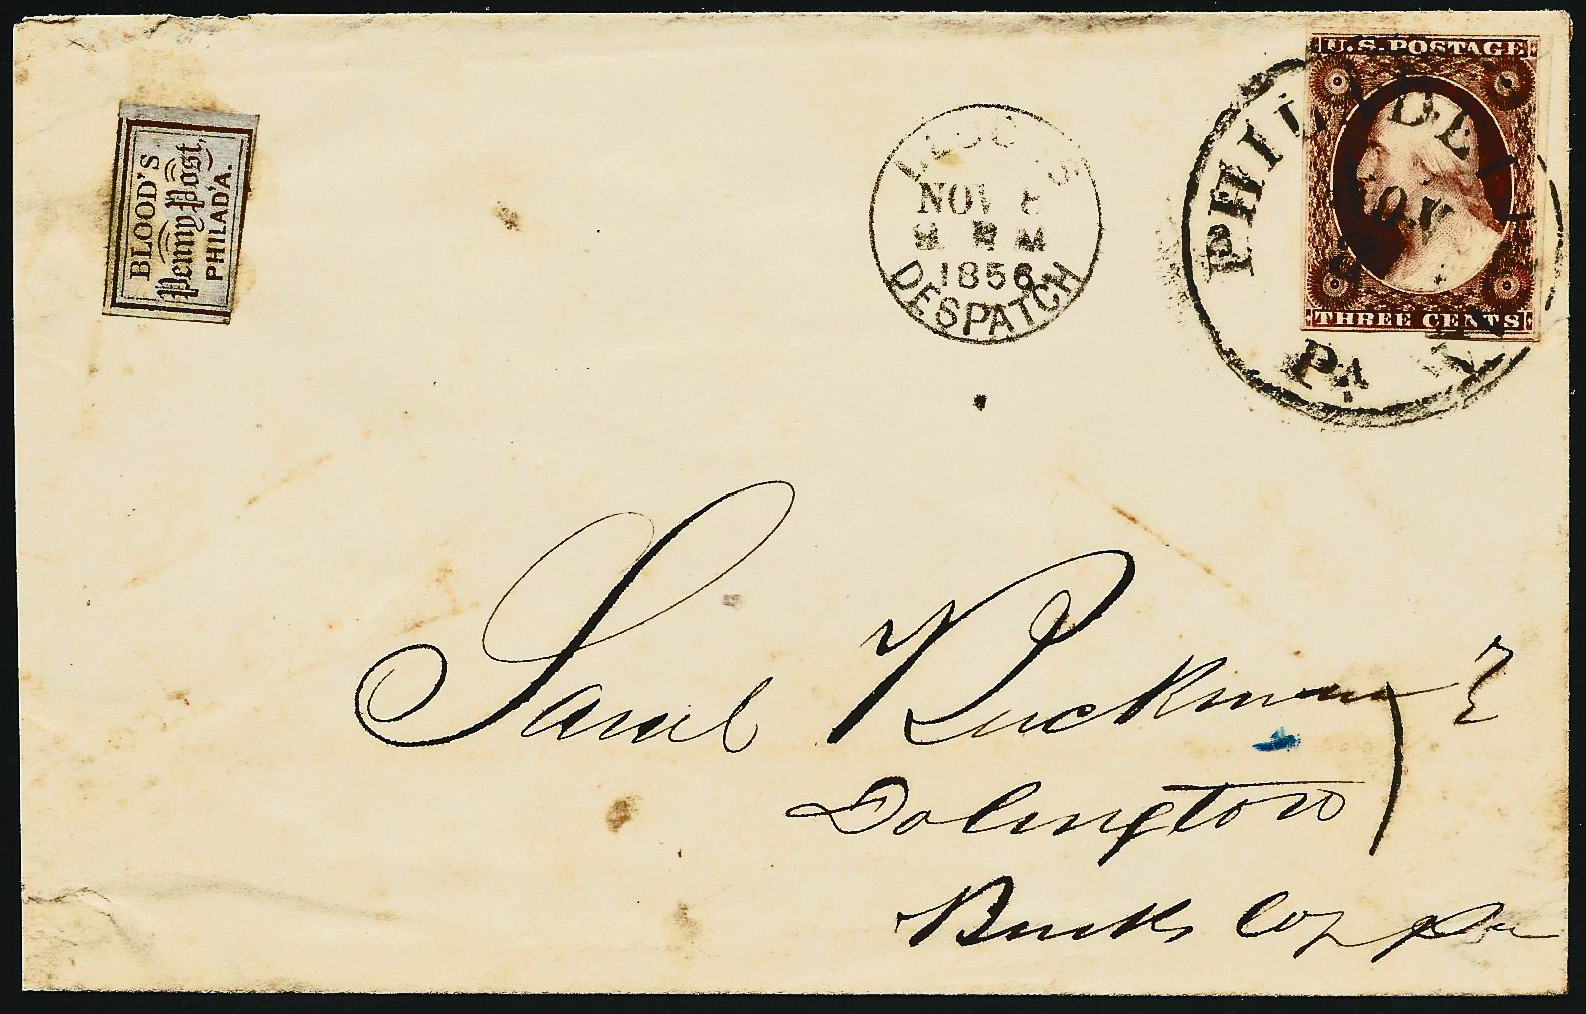 BLOOD'S
Penny Post,
PHILAD'A.
NOV 8
1856
DESPATCH
U.S. POSTAGE
THREE CENTS
PHILADEL
NOV
PA
Saml Ruckman
Dolington
Bucks Co Pa